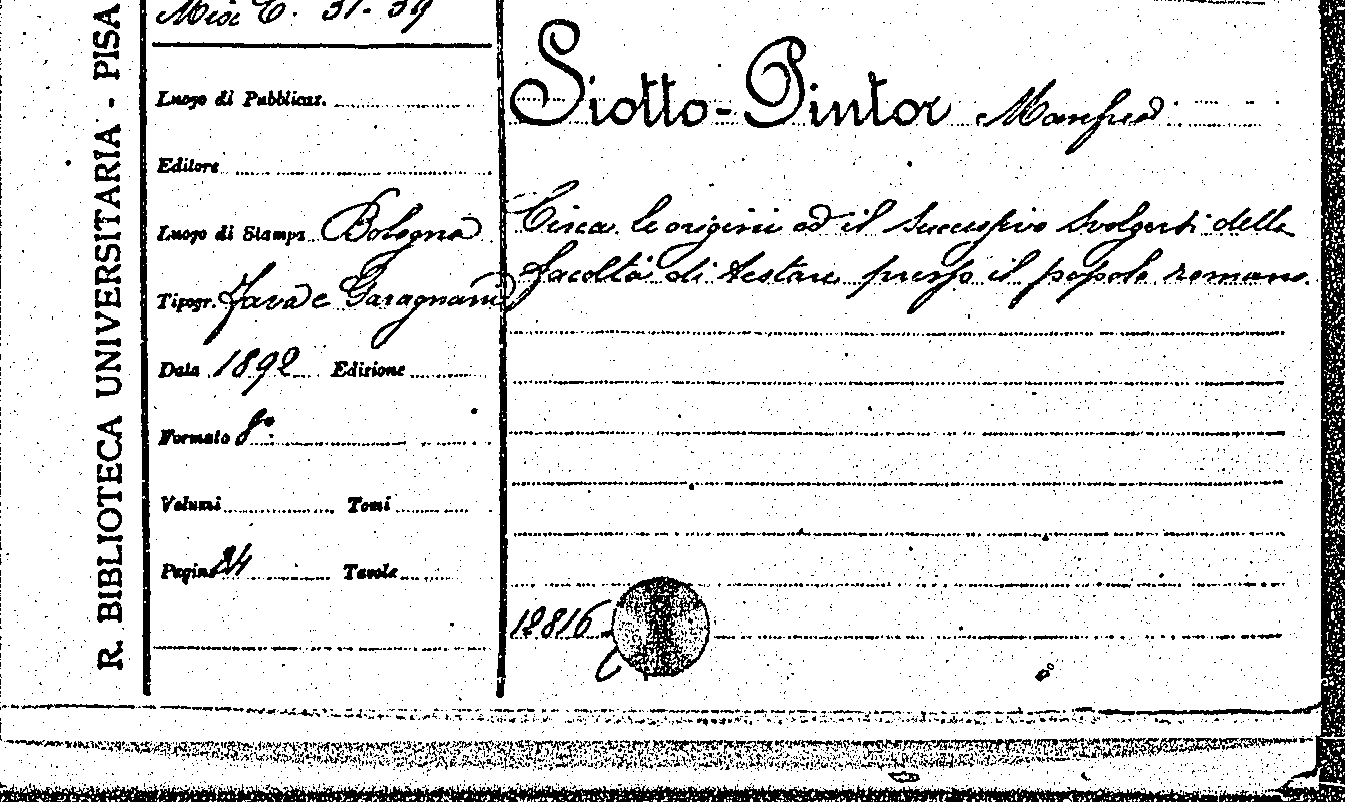 R. BIBLIOTECA UNIVERSITARIA - PISA
Misc C. 31. 39
Luogo di Pubblicaz.
Editore
Luogo di Stampa Bologna
Tipogr. Fava e Garagnani
Data 1892 Edizione
Formato 8°
Volumi Tomi
Pagine 24 Tavole
Siotto-Pintor Manfredi
Circa le origini ed il successivo svolgersi della
facoltà di testare presso il popolo romano.
12816